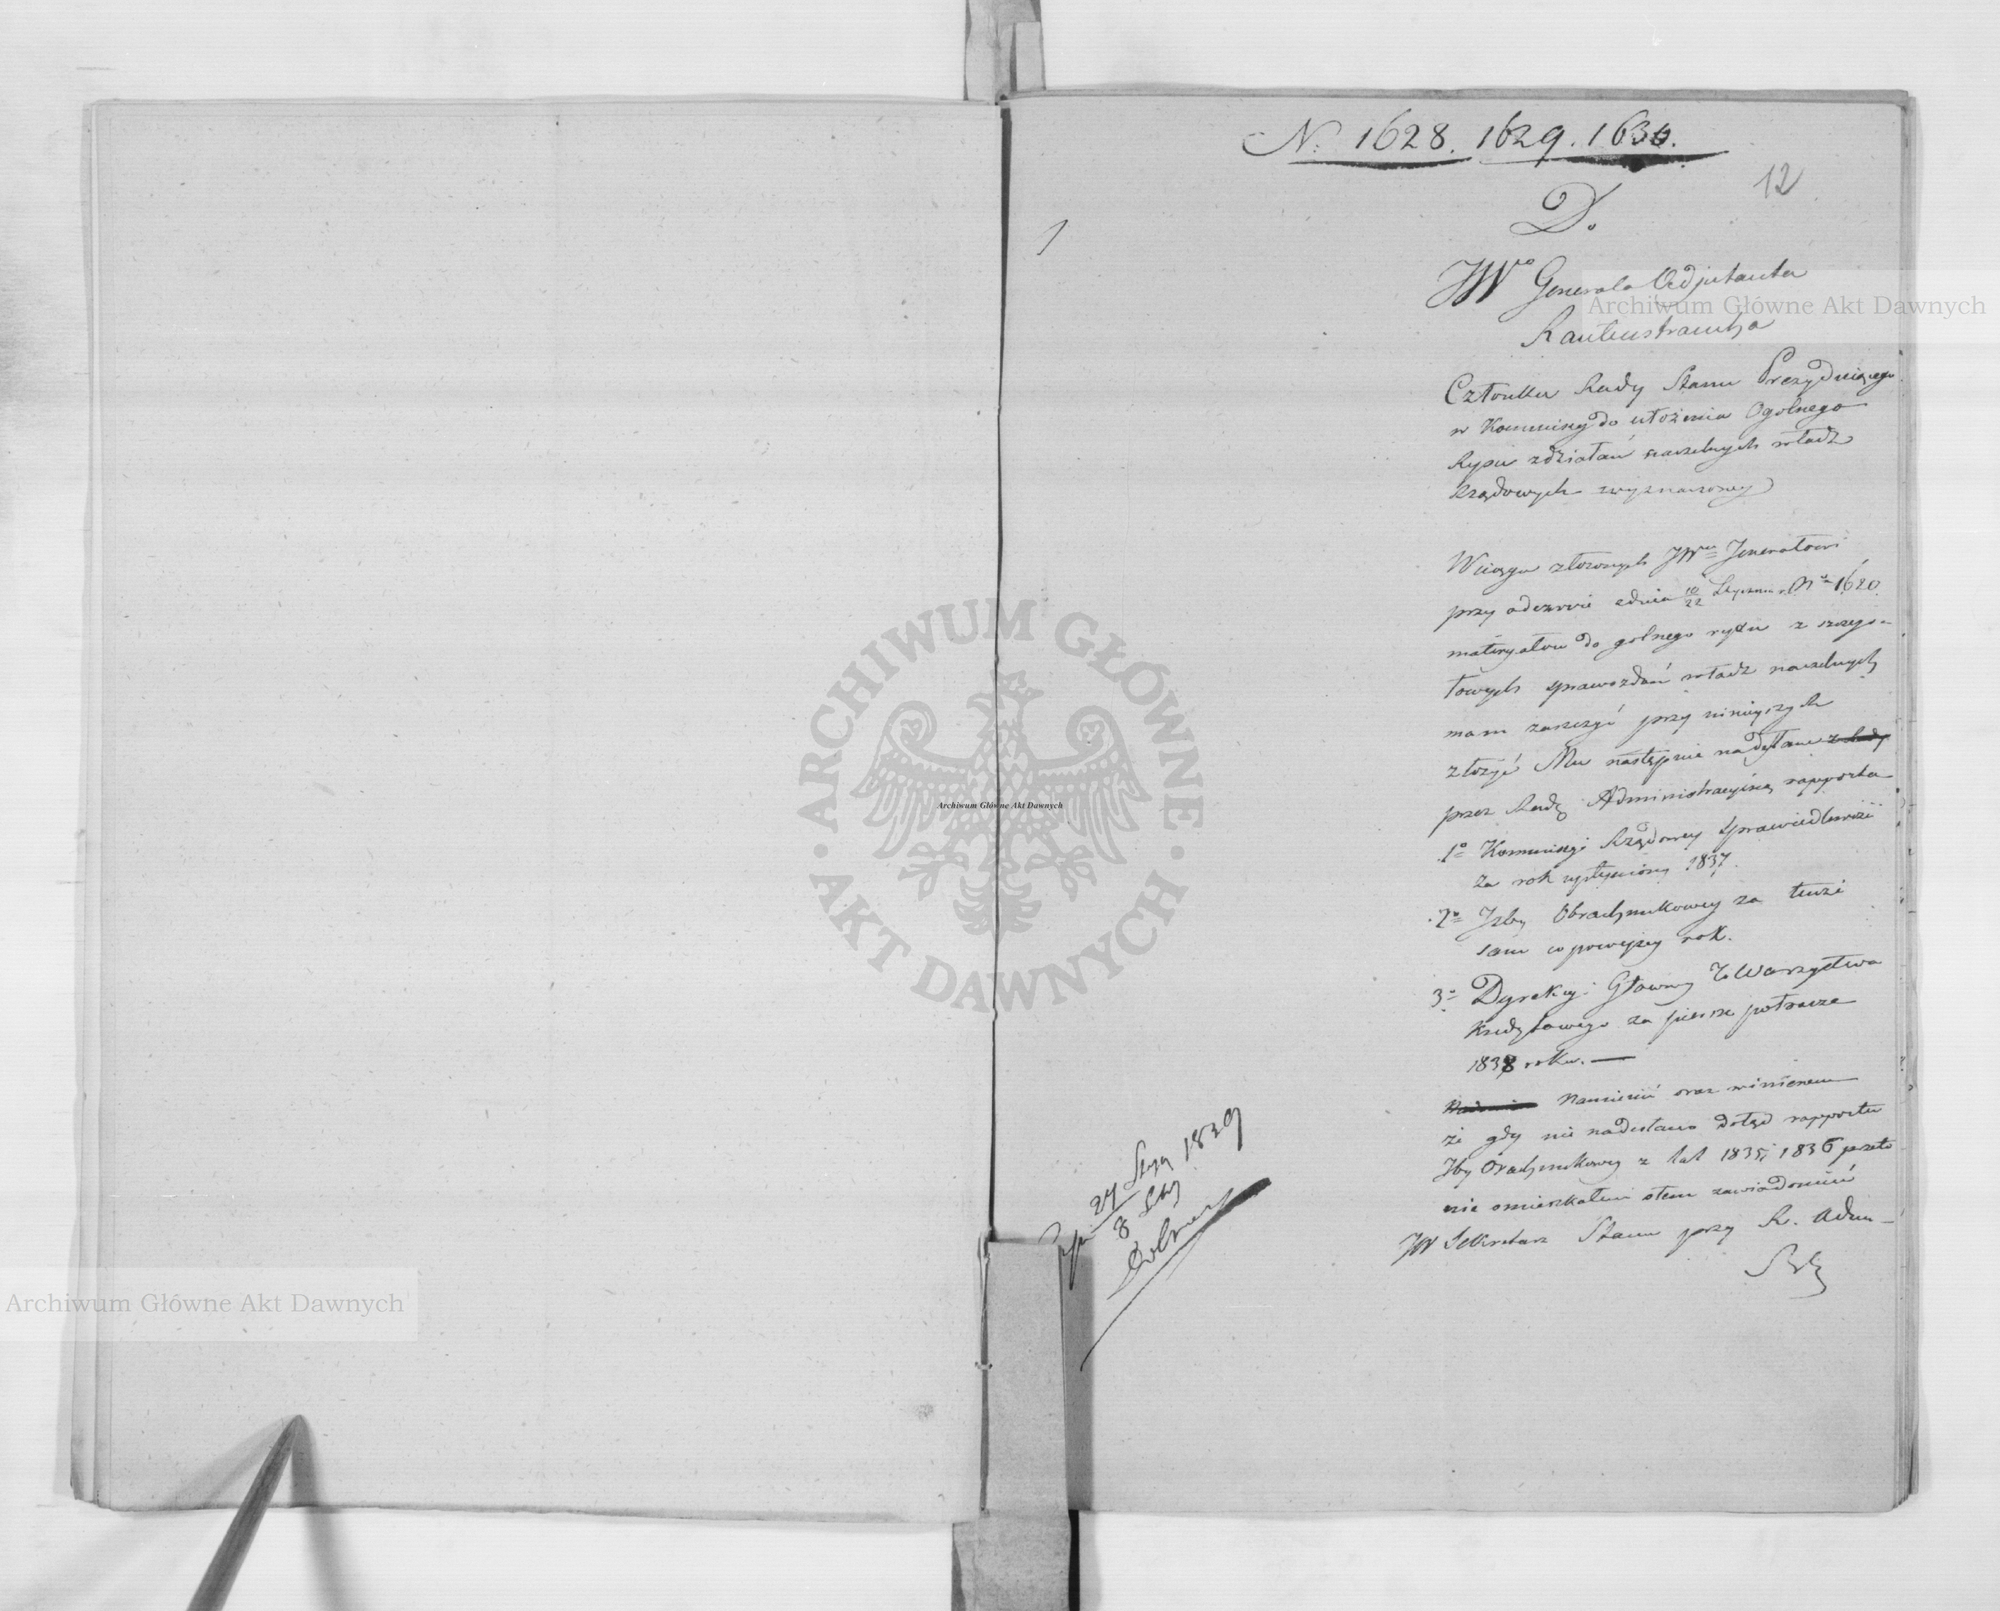 N. 1628. 1629. 1630.
12
D.
JWo Generała Adjutanta
Rautenstraucha
Członka Rady Stanu Prezydującego
w Kommissyi do ułożenia Ogólnego
Rysu zdziałań naczelnych władz
Rządowych wyznaczoney
W ciągu złożonych JWu Jenerałowi
przy odezwie z dnia 10/22 Stycznia r. b. No 1620
materyałów do golnego rysu z szczegó-
łowych sprawozdań władz naczelnych
mam zaszczyt przy ninieyszych
złożyć Mu następnie nadesłane z Rady
przez Radę Administracyjną rapporta
1o Kommissyi Rządowey Sprawiedliwości
za rok upłyniony 1837.
2o Izby Obrachunkowey za tenże
sam co powyżey rok.
3o Dyrekcyi Główney Towarzystwa
Kredytowego za piersze półrocze
1838 roku. —
Namienić oraz winienem
że gdy nie nadesłano dotąd rapportu
Izby Orachunkowey z lat 1835 i 1836 przeto
nie omieszkałem o tem zawiadomić
JW Sekretarz Stanu przy R. Adm-
27 Stycz 1839
8 Lut
Archiwum Główne Akt Dawnych
Archiwum Główne Akt Dawnych
Archiwum Główne Akt Dawnych
ARCHIWUM GŁÓWNE · AKT DAWNYCH ·